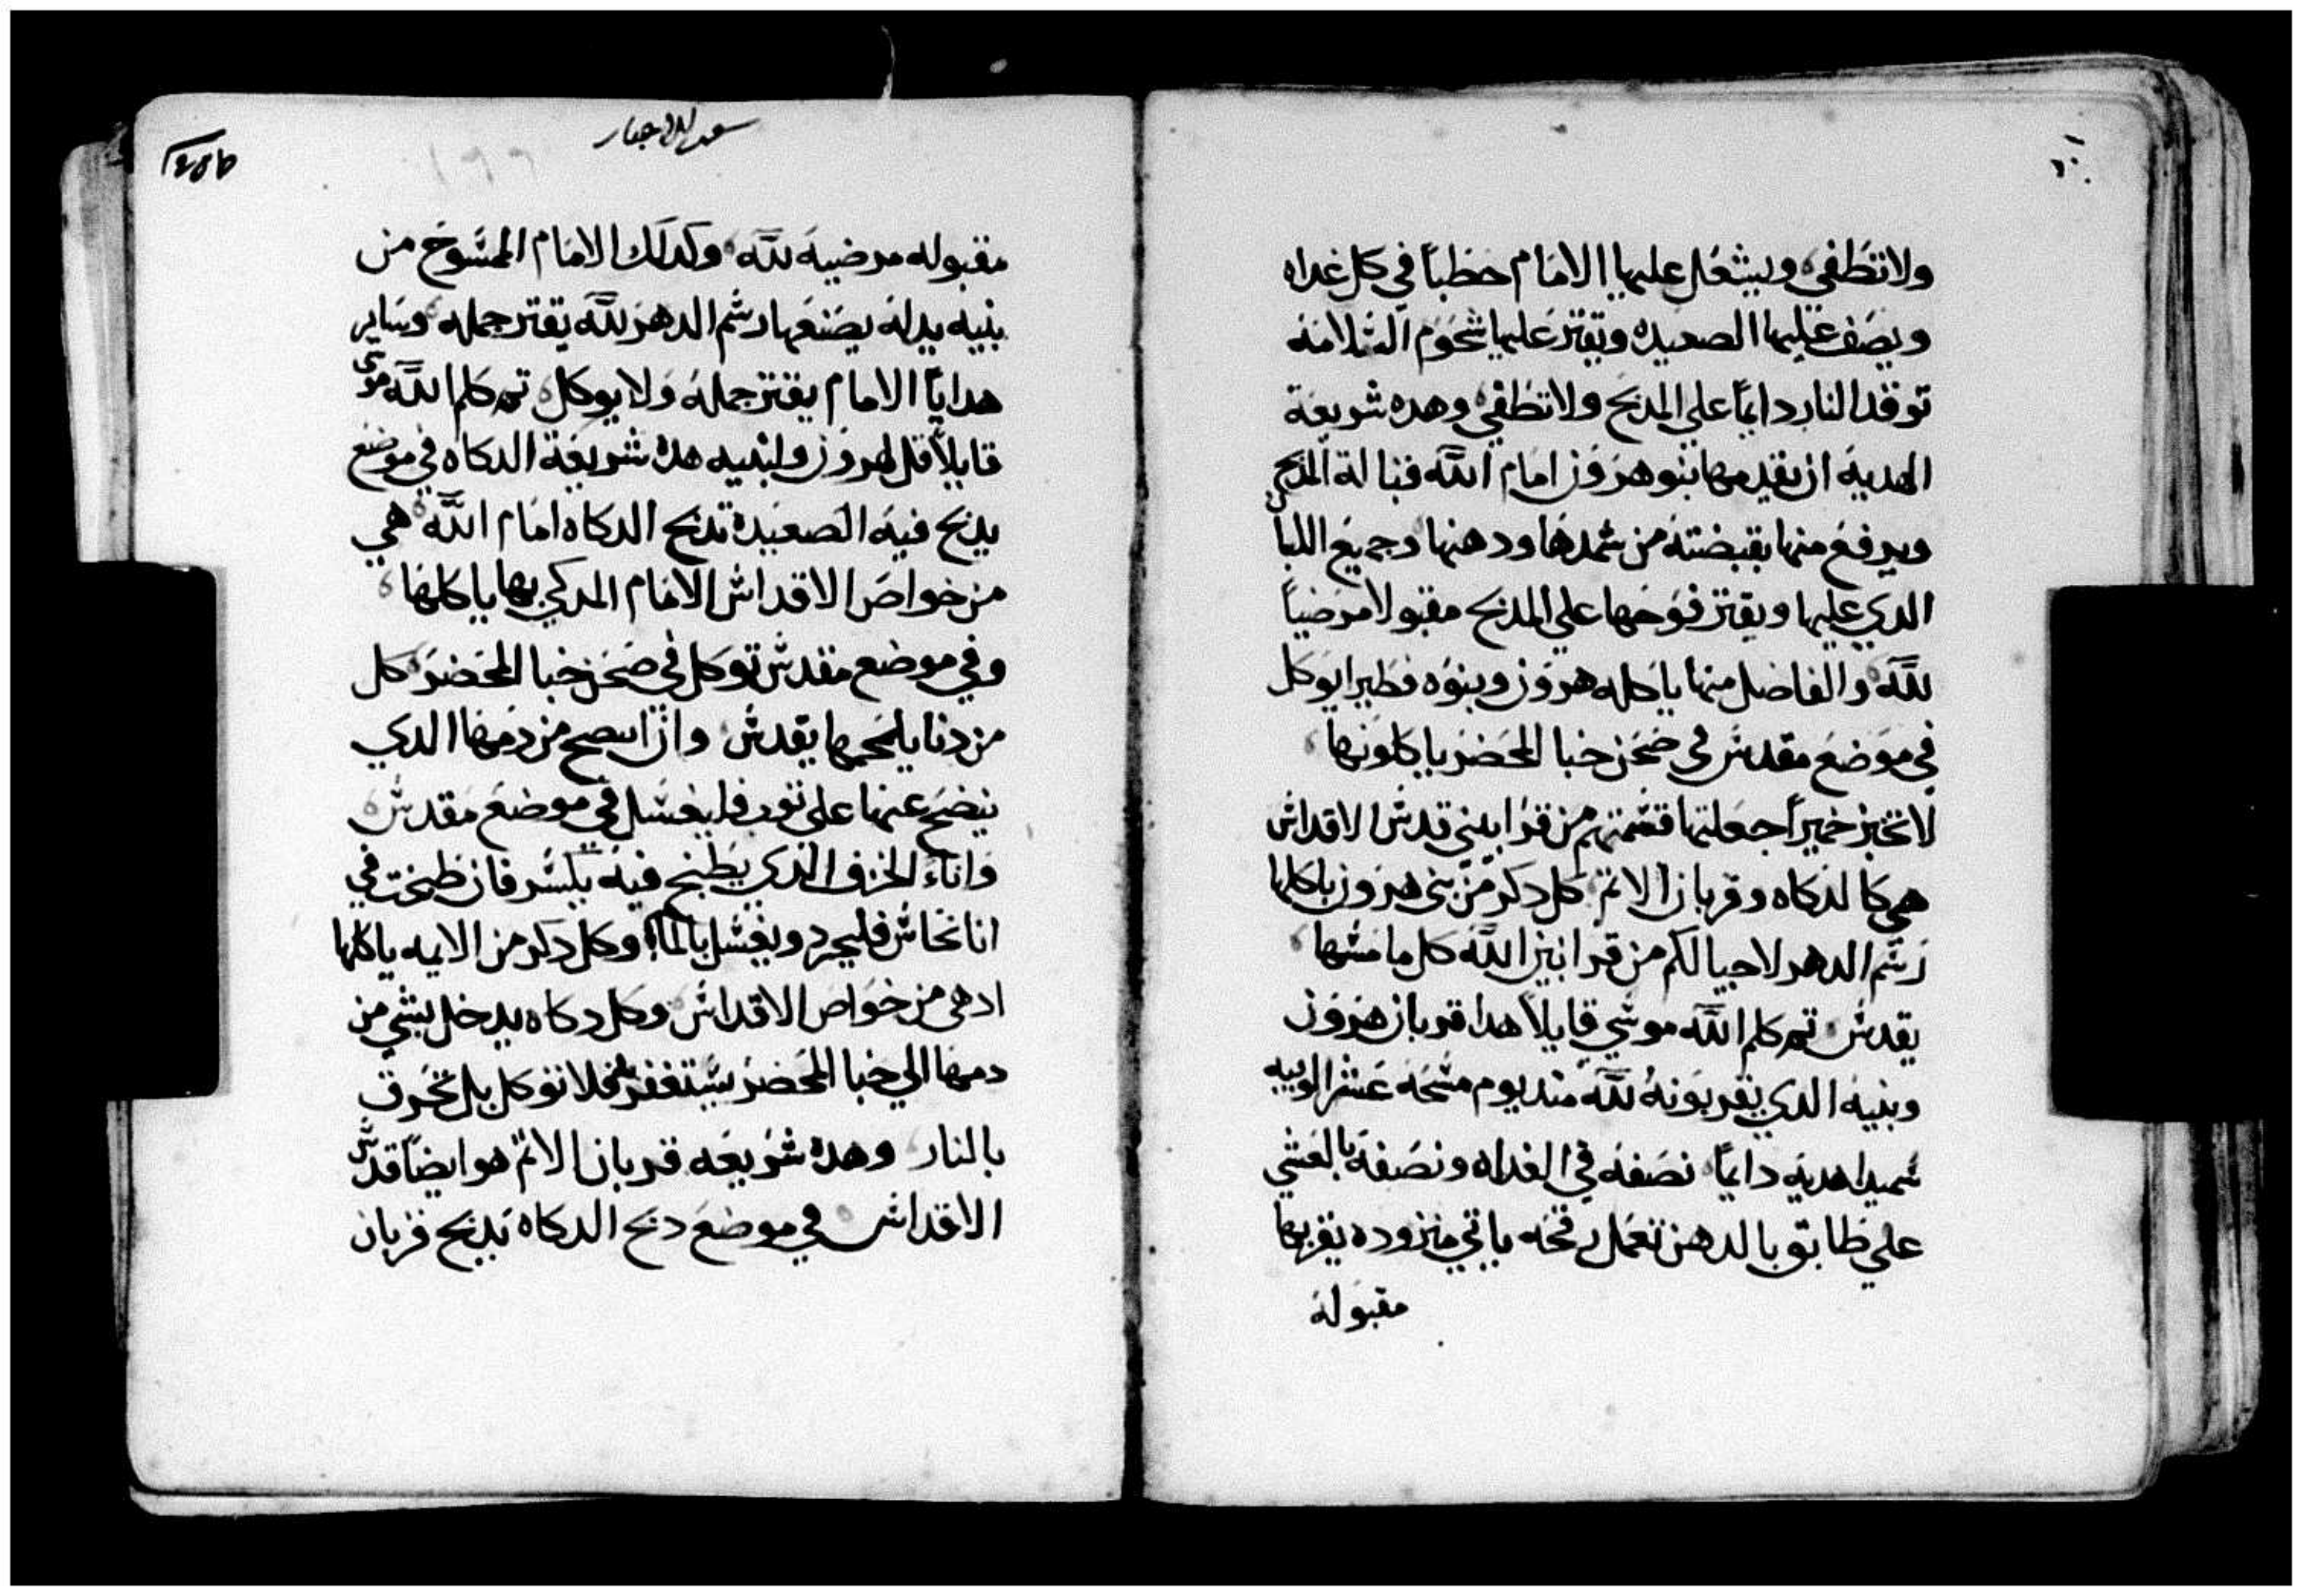 ولا تنطفي ويشعل عليها الامام حطباً في كل غداه
ويصف عليها الصعيده ويقتر عليها شحوم السلامه
توقد النار دايماً علي المدبح ولا تطفي وهده شريعة
الهدية ان يقدمها بنو هرون امام الله قبالة المدبح
ويرفع منها بقبضته من سمدها ودهنها وجميع اللبان
الدي عليها ويقتر فوحها علي المدبح مقبولا مرضياً
لله والفاضل منها ياكله هرون وبنوه فطيرا يوكل
في موضع مقدس في صحن خبا المحضر ياكلونها
لا تخبز خميراً جعلتها قسمتهم من قرابيني قدس الاقداس
هي كالدكاه وقربان الاتم كل دكر من بني هرون ياكلها
رسم الدهر لاجيالكم من قرابين الله كل ما مسها
يقدس تم كلم الله موسي قايلاً هدا قربان هرون
وبنيه الدي يقربونه لله مند يوم مسحه عشر الويبه
سميدا هديه دايماً نصفه في الغداه ونصفه بالعشي
علي طابق بالدهن تعمل ياتي بها يقربها
مقبوله
1456
مقبوله مرضية لله وكدلك الامام الممسوح من
بنيه بدله يصنعها رسم الدهر لله يقتر جمله وساير
هدايا الامام يقتر جمله ولا يوكل تم كلم الله موسي
قايلاً قل لهرون ولبنيه هده شريعة الدكاه في موضع
يدبح فيه الصعيدة تدبح الدكاه امام الله هي
من خواص الاقداس الامام المدكي بها ياكلها
وفي موضع مقدس توكل في صحن خبا المحضر كل
من دنا بلحمها يقدس وان انتضح من دمها الدي
ينضح عنها علي توب فليغسل في موضع مقدس
واناء الخزف الدي يطبخ فيه يكسر فان طبخت في
انا نحاس فليجرد ويغسل بالما وكل دكر من الايمه ياكلها
اد هي من خواص الاقداس وكل دكاه يدخل بشي من
دمها الي خبا المحضر يستغفر فلا توكل بل تحرق
بالنار وهده شريعه قربان الاتم هو ايضاً قدس
الاقداس في موضع دبح الدكاه يدبح قربان